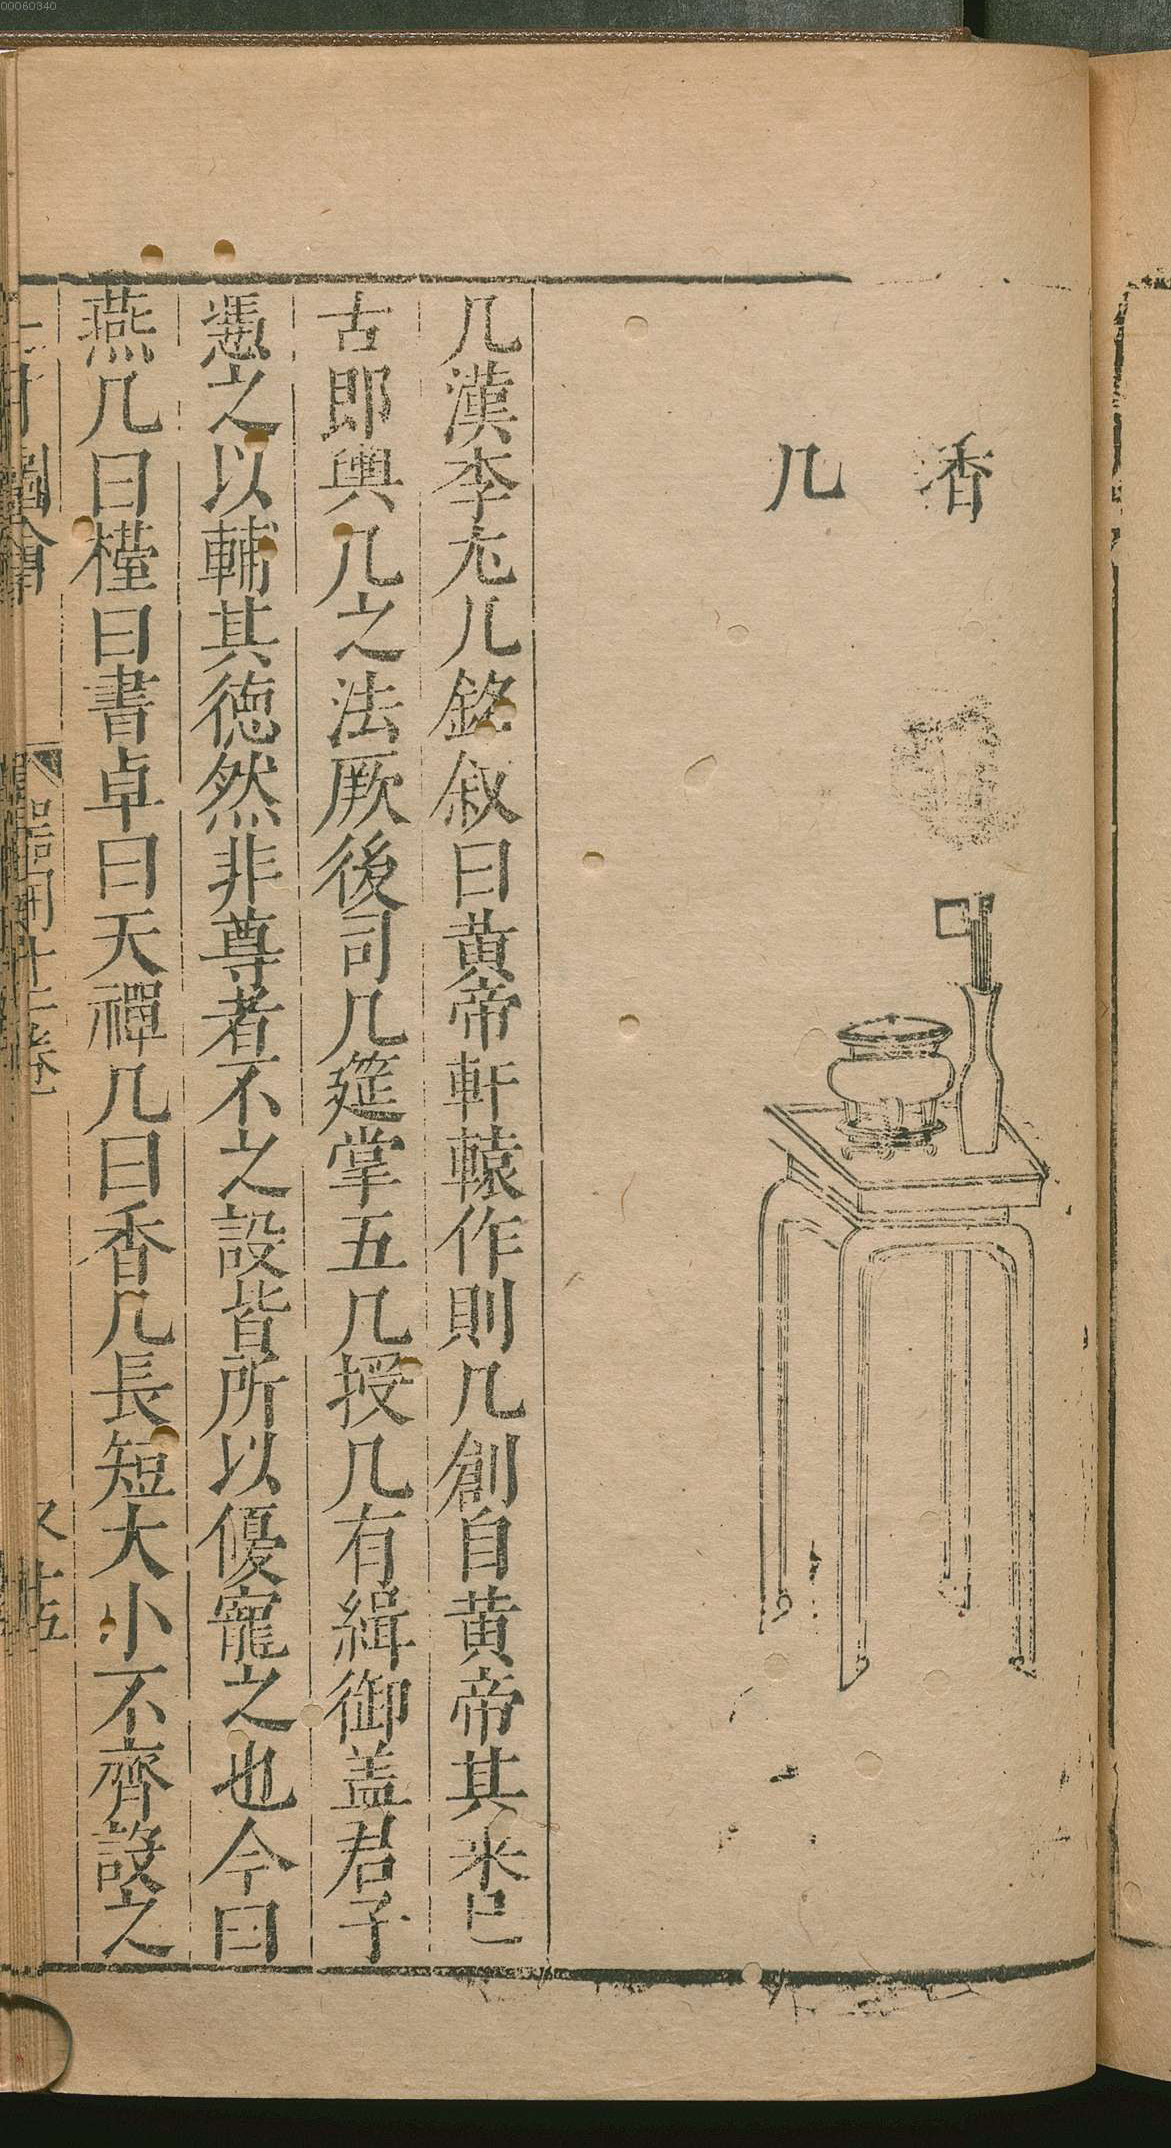 00060340
香几
几漢李尤几銘叙曰黄帝軒轅作則几創自黄帝其来已
古即輿几之法厥後司几筵掌五几授几有緝御盖君子
憑之以輔其徳然非尊者不之設皆所以優寵之也今曰
燕几曰㯖曰書卓曰天禪几曰香几長短大小不齊設之
圖會
器用十二卷
又十五